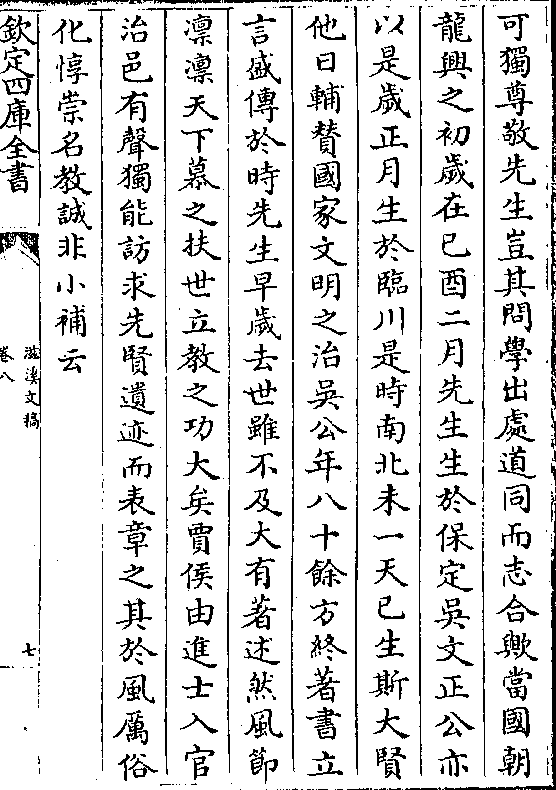 可獨尊敬先生豈其問學出處道同而志合歟當國朝
龍興之初歲在已酉二月先生生於保定吳文正公亦
以是歲正月生於臨川是時南北未一天已生斯大賢
他日輔賛國家文明之治吳公年八十餘方終著書立
言盛傳於時先生早歲去世雖不及大有著述然風節
凛凛天下慕之扶世立教之功大矣賈侯由進士入官
治邑有聲獨能訪求先賢遺迹而表章之其於風厲俗
化惇崇名教誠非小補云
欽定四庫全書
滋溪文稿
卷八
七